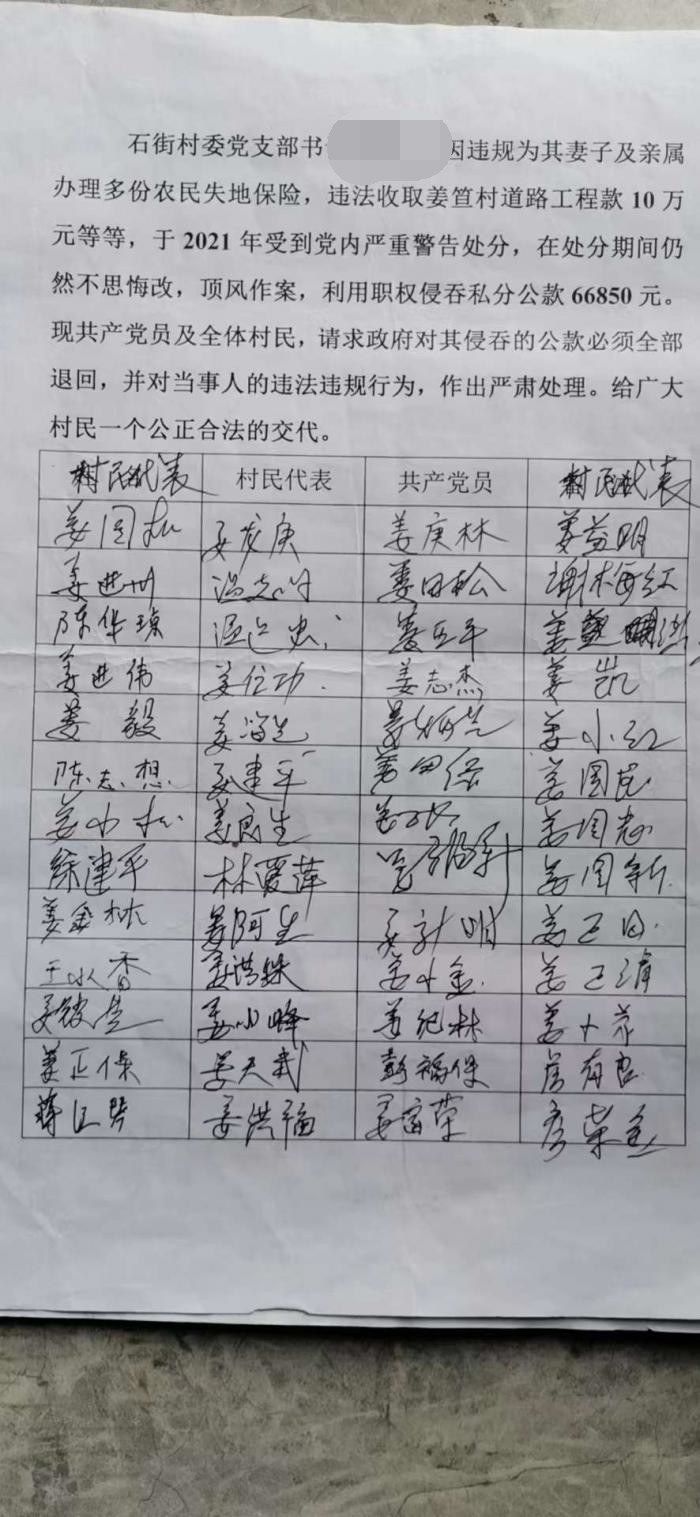 石街村委党支部书 因违规为其妻子及亲属
办理多份农民失地保险，违法收取姜笪村道路工程款 10 万
元等等，于 2021 年受到党内严重警告处分，在处分期间仍
然不思悔改，顶风作案，利用职权侵吞私分公款 66850 元。
现共产党员及全体村民，请求政府对其侵吞的公款必须全部
退回，并对当事人的违法违规行为，作出严肃处理。给广大
村民一个公正合法的交代。
村民代表 村民代表 共产党员 村民代表
姜国松 姜发庚 姜庚林 姜益明
姜进州 姜田松 谢梅红
陈华琼 姜五平
姜进伟 姜位功 姜志杰 姜凯
姜毅 姜小红
陈志想 姜建平 姜国民
姜小松 姜良生 姜国志
徐建平 林爱萍 姜国新
姜金林 姜阿生 姜新明 姜正国
王水香 姜小金 姜正清
姜小峰 姜纪林
姜正保 姜天武 彭福保
姜洪福 姜富荣